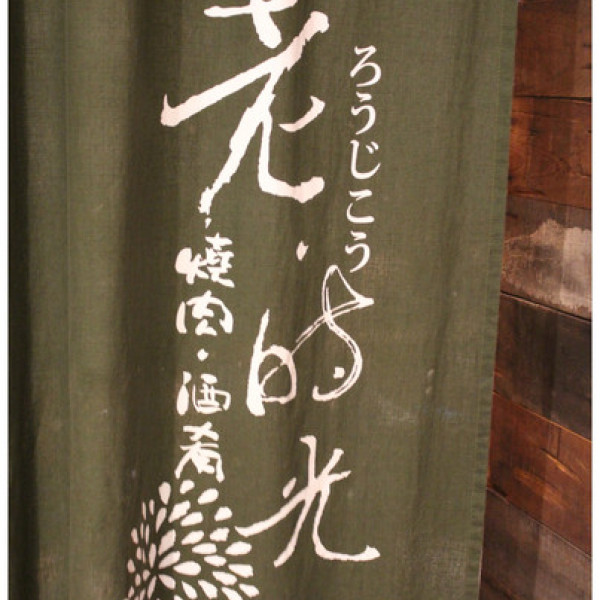 ろうじこう
老・時光
燒肉・酒肴